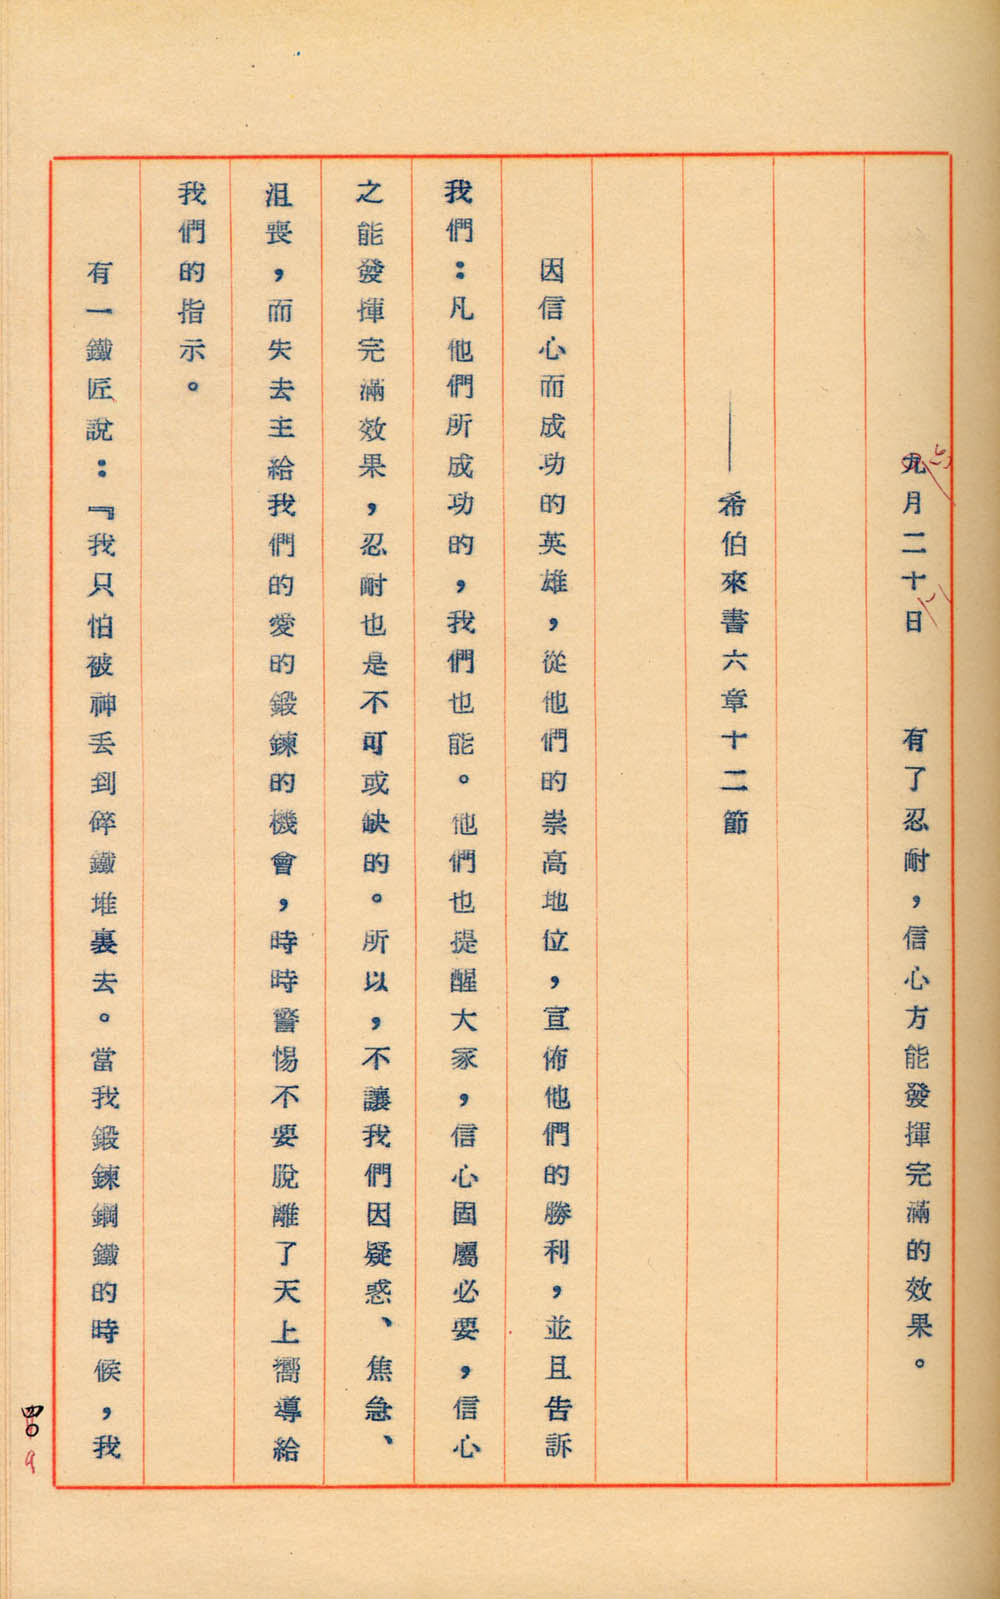 九月二十日　　有了忍耐，信心方能發揮完滿的效果。
六
八
——希伯來書六章十二節
因信心而成功的英雄，從他們的崇高地位，宣佈他們的勝利，並且告訴
我們：凡他們所成功的，我們也能。他們也提醒大家，信心固屬必要，信心
之能發揮完滿效果，忍耐也是不可或缺的。所以，不讓我們因疑惑、焦急、
沮喪，而失去主給我們的愛的鍛鍊的機會，時時警惕不要脫離了天上嚮導給
我們的指示。
有一鐵匠說：『我只怕被神丟到碎鐵堆裏去。當我鍛鍊鋼鐵的時候，我